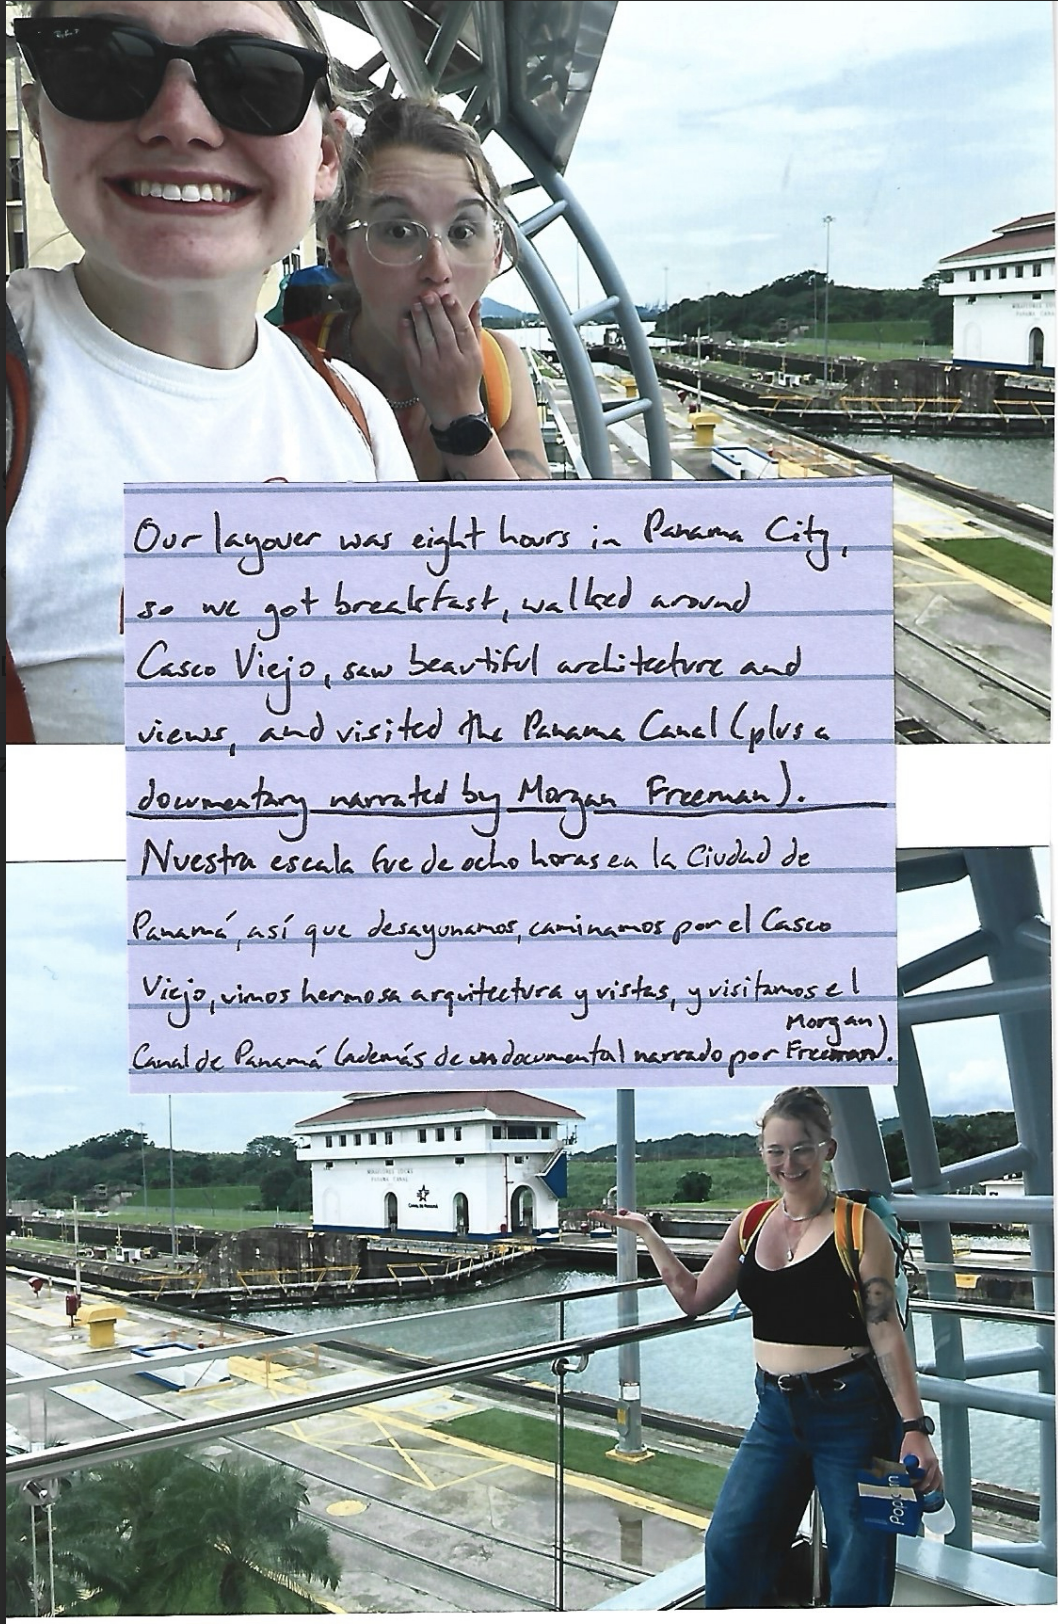 Ray-Ban
MIRAFLORES LOCKS
PANAMA CANAL
Our layover was eight hours in Panama City,
so we got breakfast, walked around
Casco Viejo, saw beautiful architecture and
views, and visited the Panama Canal (plus a
documentary narrated by Morgan Freeman).
Nuestra escala fue de ocho horas en la Ciudad de
Panamá, así que desayunamos, caminamos por el Casco
Viejo, vimos hermosa arquitectura y vistas, y visitamos el
Canal de Panamá (además de un documental narrado por Morgan Freeman).
MIRAFLORES LOCKS
PANAMA CANAL
Canal de Panamá
Popcorn